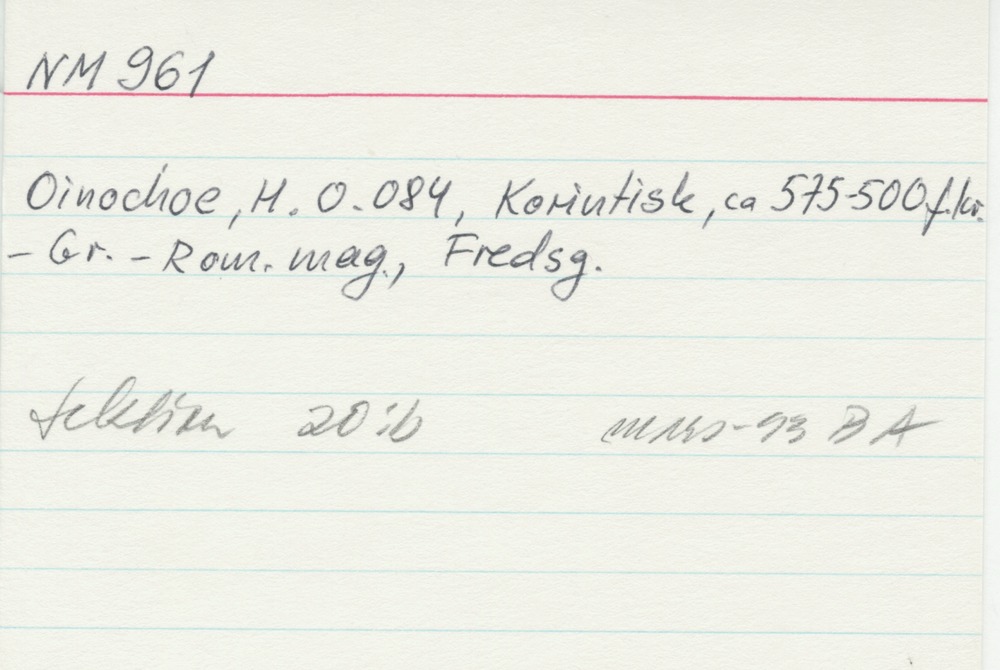 NM 961
Oinochoe, H. 0.084, Korintisk, ca 575-500 f.kr.
- Gr. - Rom. mag., Fredsg.
sektion 20:b -93 BA